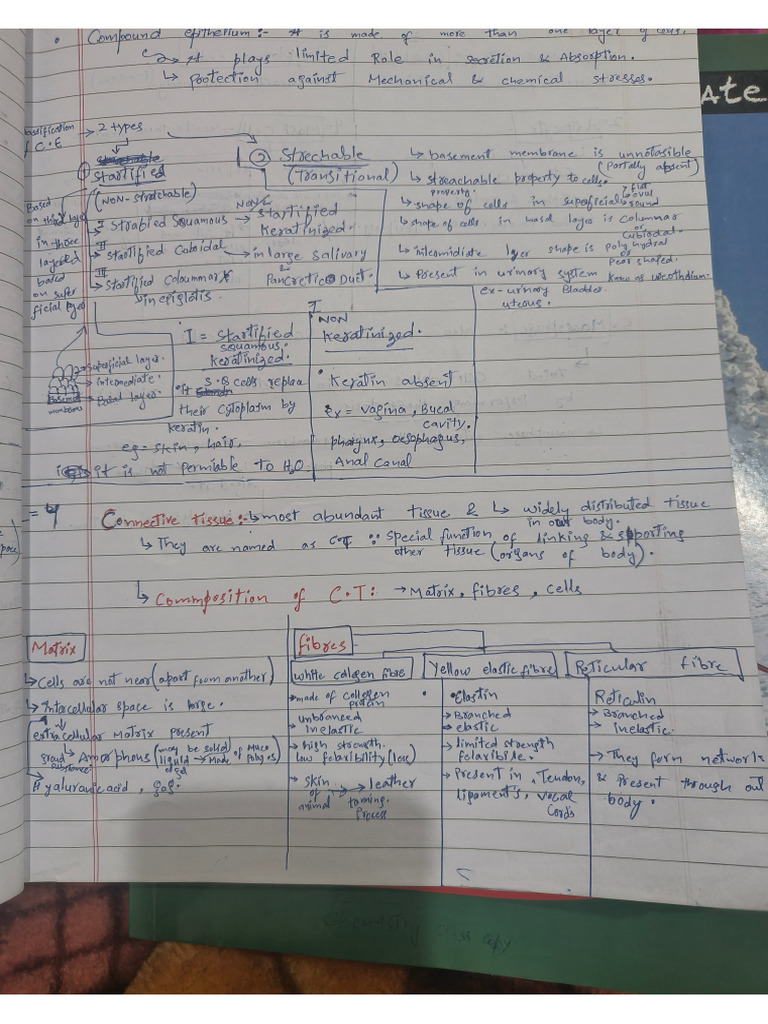 • Compound epithelium:- It is made of more than one layer of cells.
↳ It plays limited Role in secretion & Absorption.
↳ protection against Mechanical & chemical stresses.
classification of C.E → 2 types
① Startified
(NON-stretchable)
Based on third layer in those layered based on super ficial layer
I Strabied Squamous
NON K
startified Keratinized.
II Startified Caboidal → in large salivary & Pancretic Duct.
III Startified Coloumnar
↳ in epiglotis.
② Strechable
(Transitional)
↳ basement membrane is unnotasible (Partially absent)
↳ streachable property to cells.
property:
↳ shape of cells in superficial flat oval round
↳ shape of cells in basal layer is columnar or cubiodal.
↳ intermidiate layer shape is polyhydral or Pear shaped.
↳ Present in urinary system
Know as urothdium.
ex-urinary Bladder.
uterous.
Superficial layer.
intermediate.
Basal layer.
Basement membrane
I = startified
squamous.
Keratinized.
• It S.S cells replace
their cytoplasm by
Keratin.
eg- skin, hair,
it is not permiable to H₂O.
I
NON
Keratinized.
• Keratin absent
Ex = vagina, Bucal
cavity.
pharynx, oesophagus,
Anal canal
= 4
Connective tissue:- ↳ most abundant tissue & ↳ widely distributed tissue
in our body.
↳ They are named as C.T ∵ special function of linking & supporting
other tissue (organs of body).
↳ Commposition of C.T: → Matrix, fibres, cells
Matrix
↳ Cells are not near (apart from another)
↳ Intercellular space is large.
extracellular matrix present
ground substance
↳ Amorphous (may be solid liquid → Made of Muco polys)
Hyaluranic acid,
fibres
white collgen fibre
→ made of collegen protein
→ unbranced
inelastic
→ high strength.
low folaribility (less)
→ skin of animal → leather
taming process
Yellow elastic fibre
• Elastin
→ Branched
→ elastic
→ limited strength
folaribile.
→ Present in, Tendon,
ligament's, vocal
Cords
Reticular fibre
Reticulin
→ Branched
→ inelastic.
→ They form network
& Present through out
body.
ate
Chemistry class copy